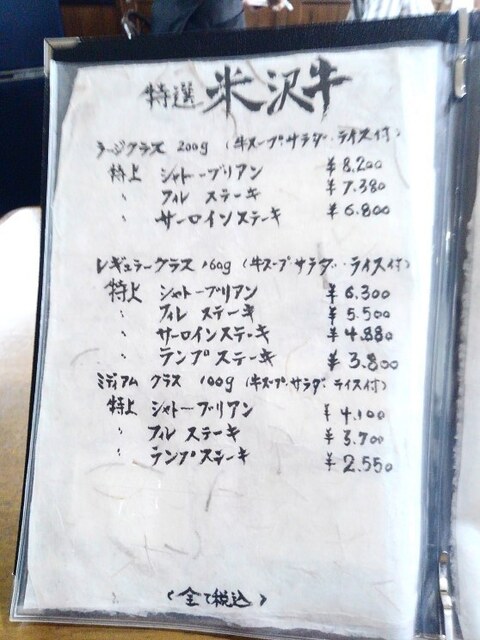 特選 米沢牛
ラージクラス 200g (牛スープ・サラダ・ライス付)
特上 シャトーブリアン ¥8.200
〃 フィレ ステーキ ¥7.380
〃 サーロインステーキ ¥6.800
レギュラークラス 160g (牛スープ・サラダ・ライス付)
特上 シャトーブリアン ¥6.300
〃 フィレ ステーキ ¥5.500
〃 サーロインステーキ ¥4.880
〃 ランプステーキ ¥3.800
ミディアム クラス 100g (牛スープ・サラダ・ライス付)
特上 シャトーブリアン ¥4.100
〃 フィレ ステーキ ¥3.700
〃 ランプステーキ ¥2.550
(全て税込)